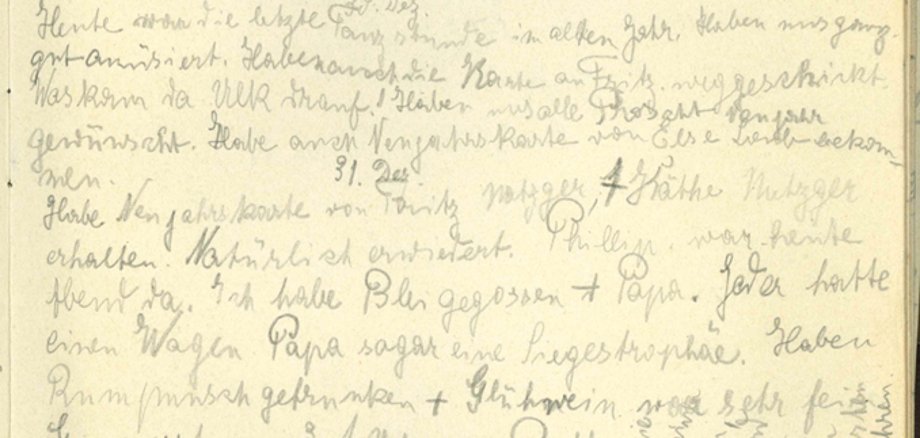 30. Dez.
Heute war die letzte Tanzstunde im alten Jahr. Haben uns ganz
gut amüsiert. Haben auch die Karte an Fritz weggeschickt.
Was kam da Ulk drauf! Haben uns alle Prosit Neujahr
gewünscht. Habe auch Neujahrskarte von Else bekom-
men.
31. Dez
Habe Neujahrskarte von Fritz Metzger, + Käthe Metzger
erhalten. Natürlich erwiedert. Phillip. war heute
Abend da. Ich habe Blei gegossen + Papa. Jeder hatte
einen Wagen Papa sogar eine Siegestrophäe. Haben
Rumpunsch getrunken + Glühwein war sehr fein